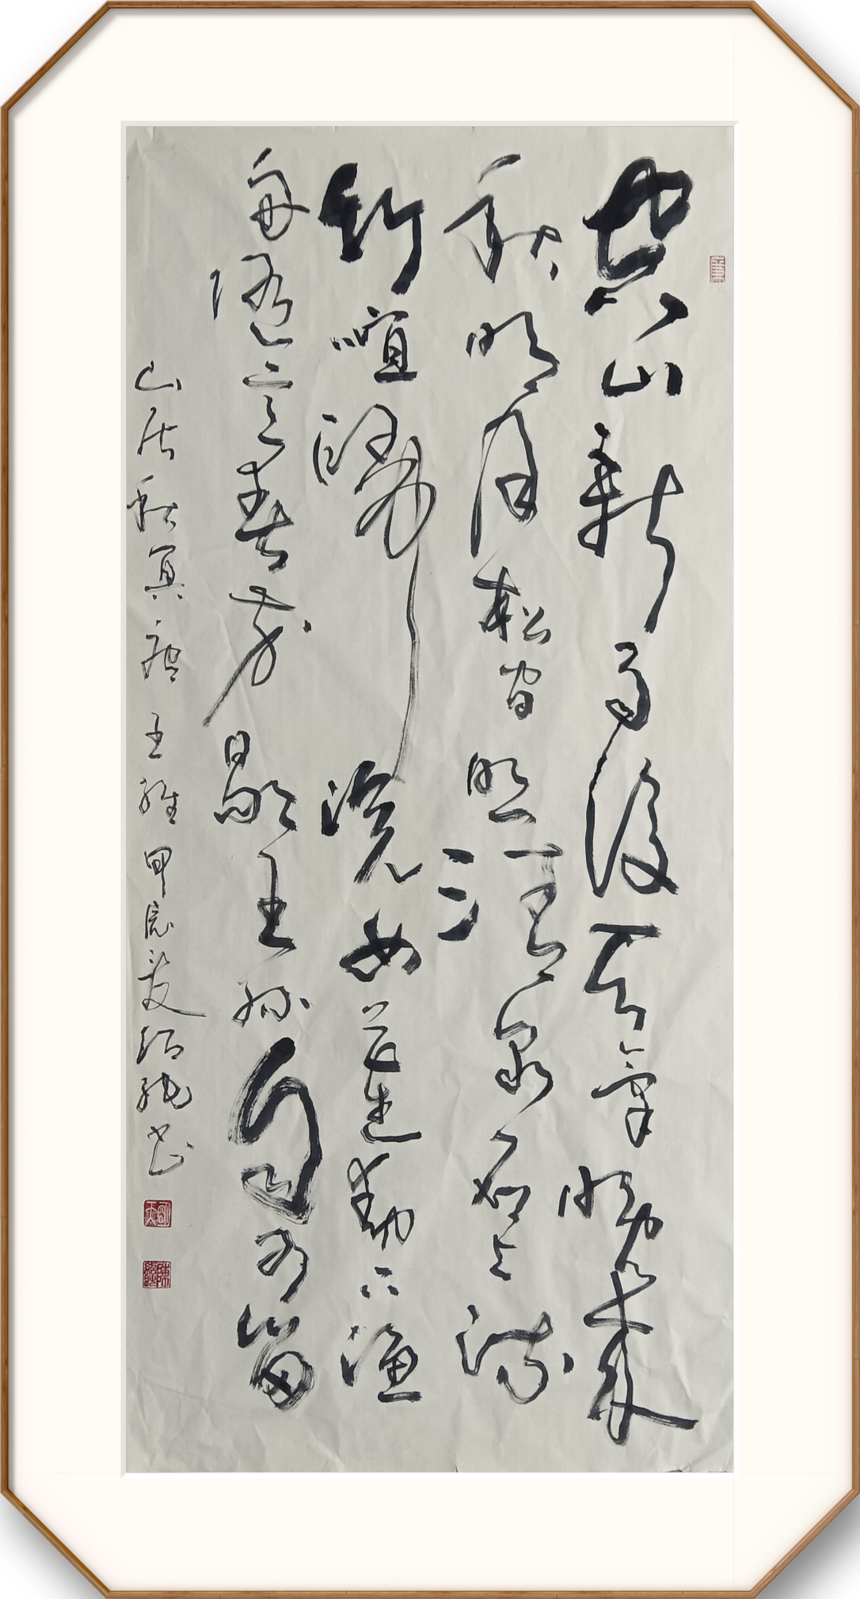 空山新雨後天氣晚来
秋明月松间照清泉石上流
竹喧歸浣女莲動下渔
舟随意春芳歇王孙自可留
山居秋冥唐王維甲辰夏绍书